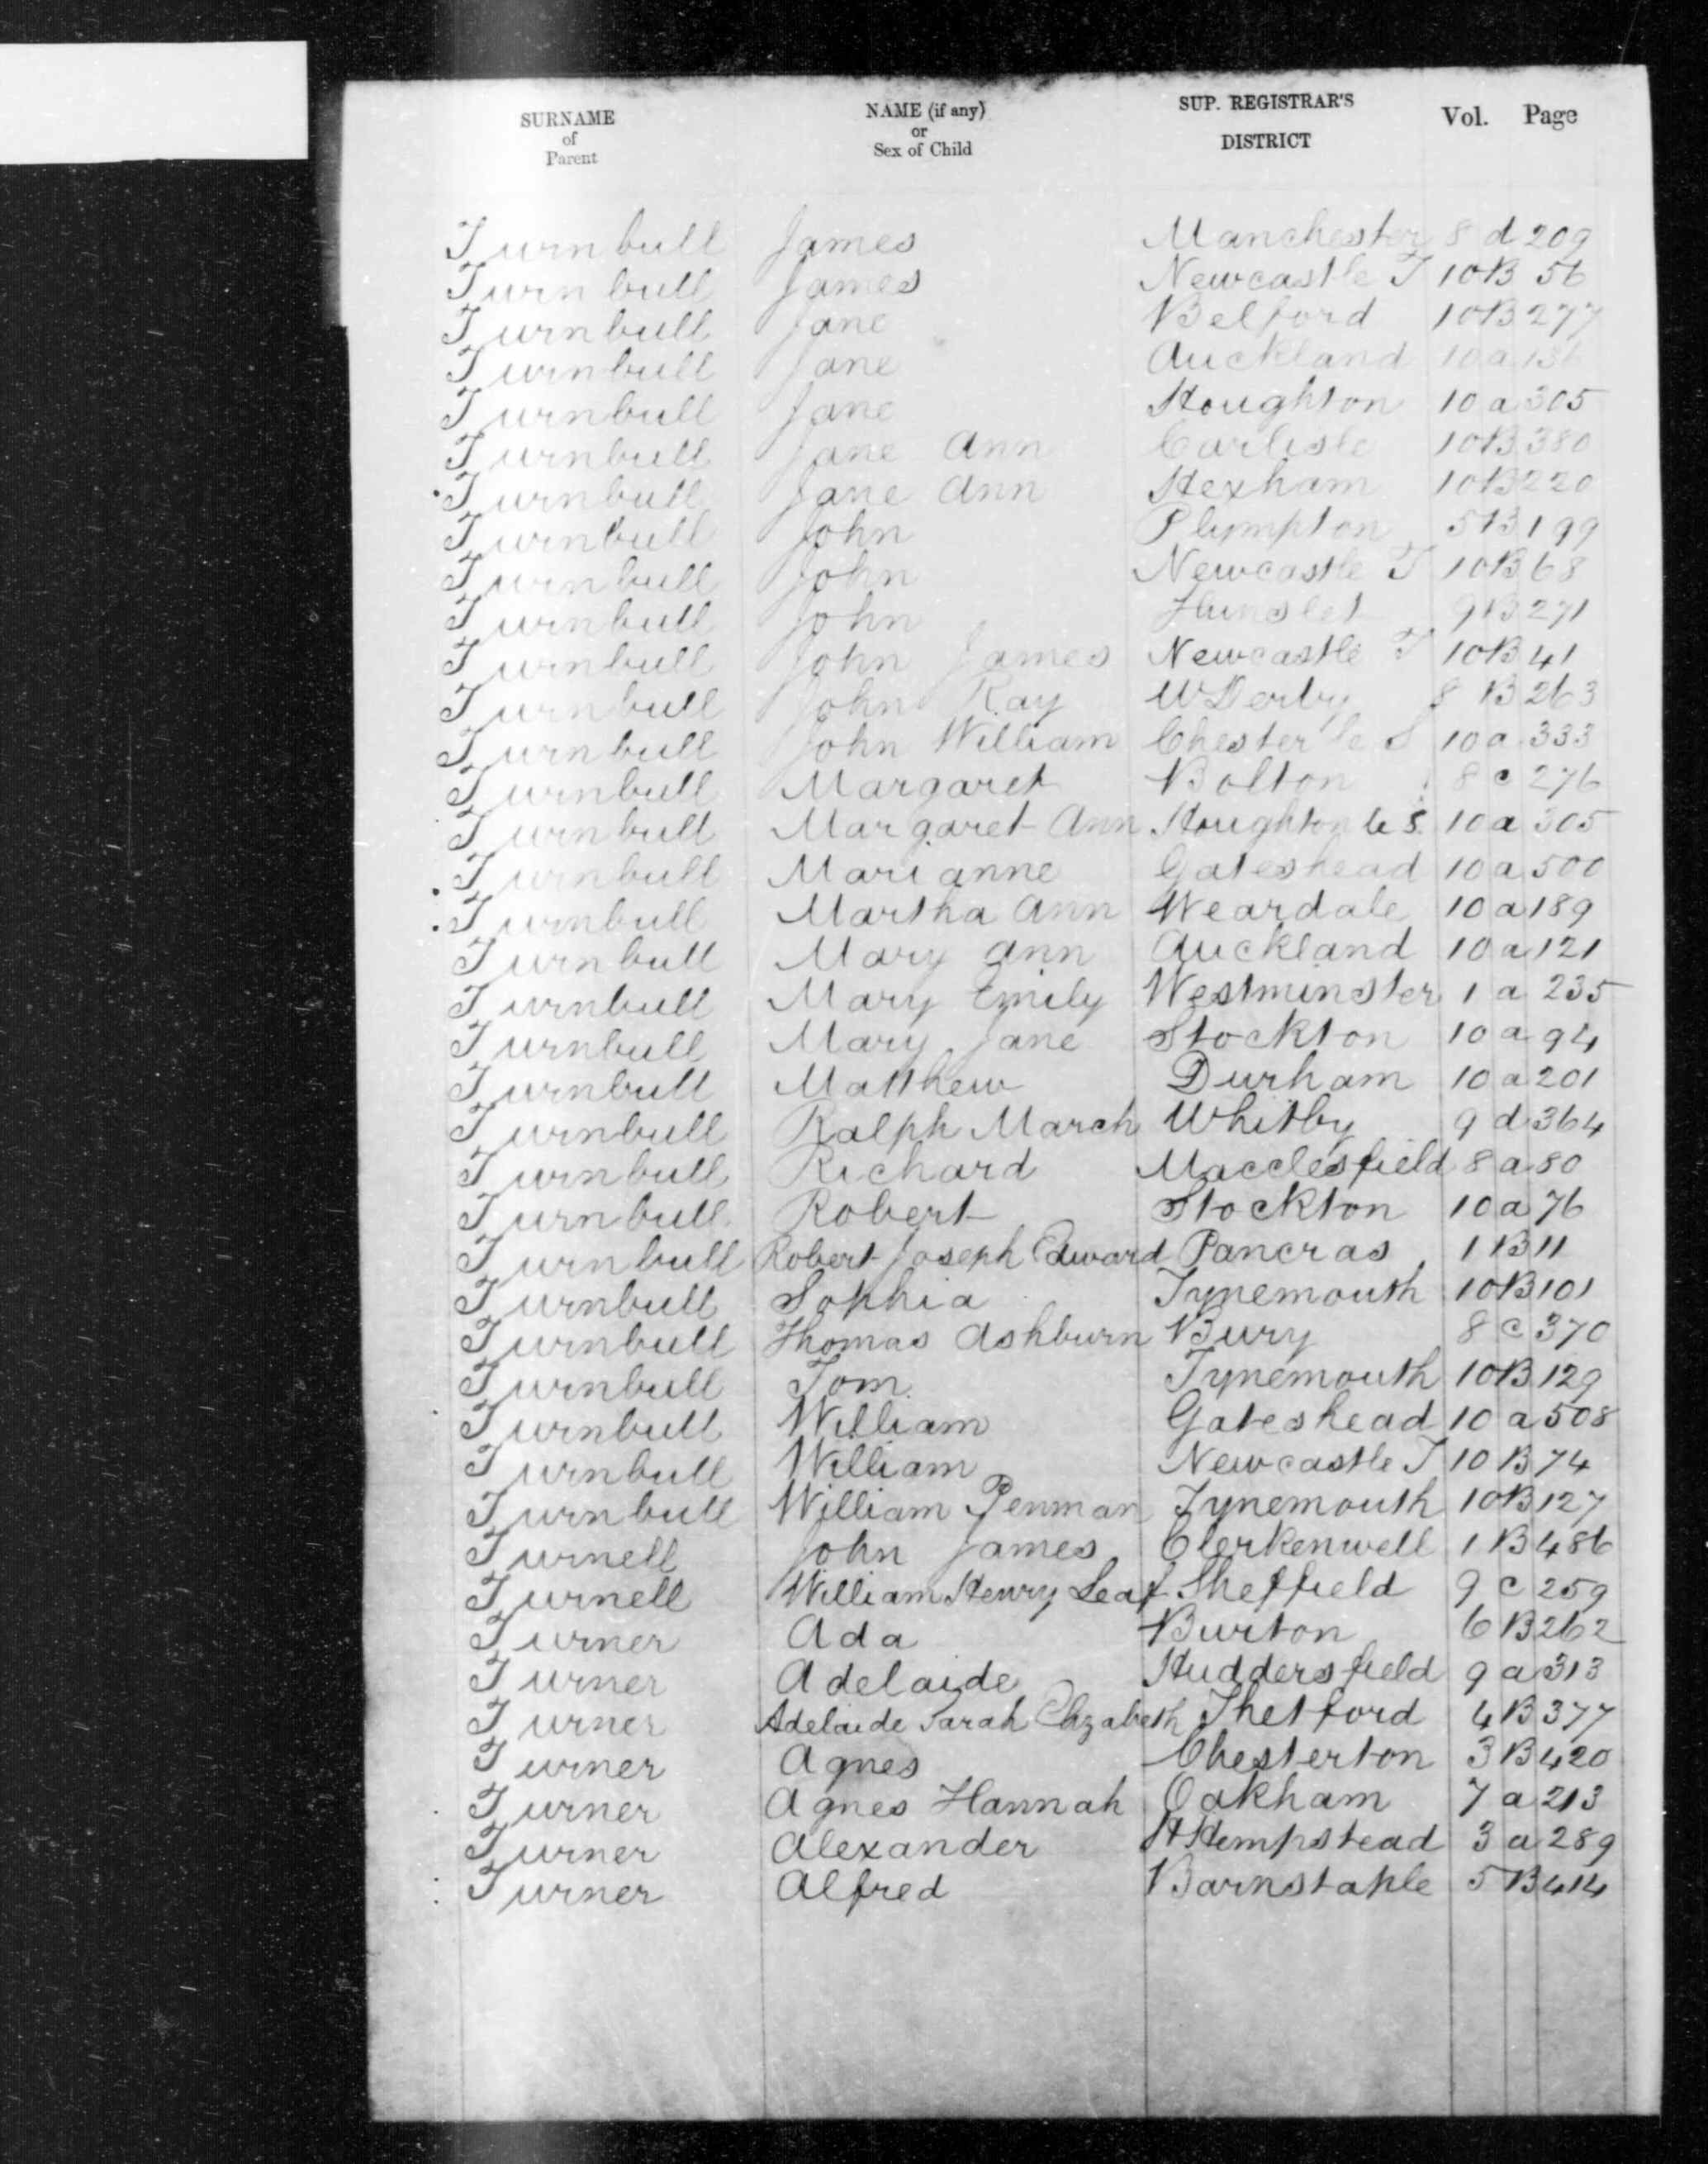 SURNAME of Parent NAME (if any) or Sex of Child SUP. REGISTRAR'S DISTRICT Vol. Page
Turnbull James Manchester 8 d 209
Turnbull James Newcastle T 10B 56
Turnbull Jane Belford 10B 277
Turnbull Jane Auckland 10 a
Turnbull Jane Houghton 10 a 305
Turnbull Jane Ann Carlisle 10B 380
Turnbull Jane Ann Hexham 10B 220
Turnbull John Plympton 5B 199
Turnbull John Newcastle T 10B 68
Turnbull John Hunslet 9B 271
Turnbull John James Newcastle T 10B 41
Turnbull John Ray W Derby 8 B 263
Turnbull John William Chester le S 10 a 333
Turnbull Margaret Bolton 8 c 276
Turnbull Margaret Ann Houghton le S. 10 a 305
Turnbull Marianne Gateshead 10 a 500
Turnbull Martha Ann Weardale 10 a 189
Turnbull Mary Ann Auckland 10 a 121
Turnbull Mary Emily Westminster 1 a 235
Turnbull Mary Jane Stockton 10 a 94
Turnbull Matthew Durham 10 a 201
Turnbull Ralph March Whitby 9 d 364
Turnbull Richard Macclesfield 8 a 80
Turnbull Robert Stockton 10 a 76
Turnbull Robert Joseph Edward Pancras 1 B 11
Turnbull Sophia Tynemouth 10B 101
Turnbull Thomas Ashburn Bury 8 c 370
Turnbull Tom Tynemouth 10B 129
Turnbull William Gateshead 10 a 508
Turnbull William Newcastle T 10 B 74
Turnbull William Penman Tynemouth 10B 127
Turnell John James Clerkenwell 1 B 486
Turnell William Henry Leaf Sheffield 9 c 259
Turner Ada Burton 6 B 262
Turner Adelaide Huddersfield 9 a 313
Turner Adelaide Sarah Elizabeth Thetford 4B 377
Turner Agnes Chesterton 3 B 420
Turner Agnes Hannah Oakham 7 a 213
Turner Alexander H Hempstead 3 a 289
Turner Alfred Barnstaple 5 B 414